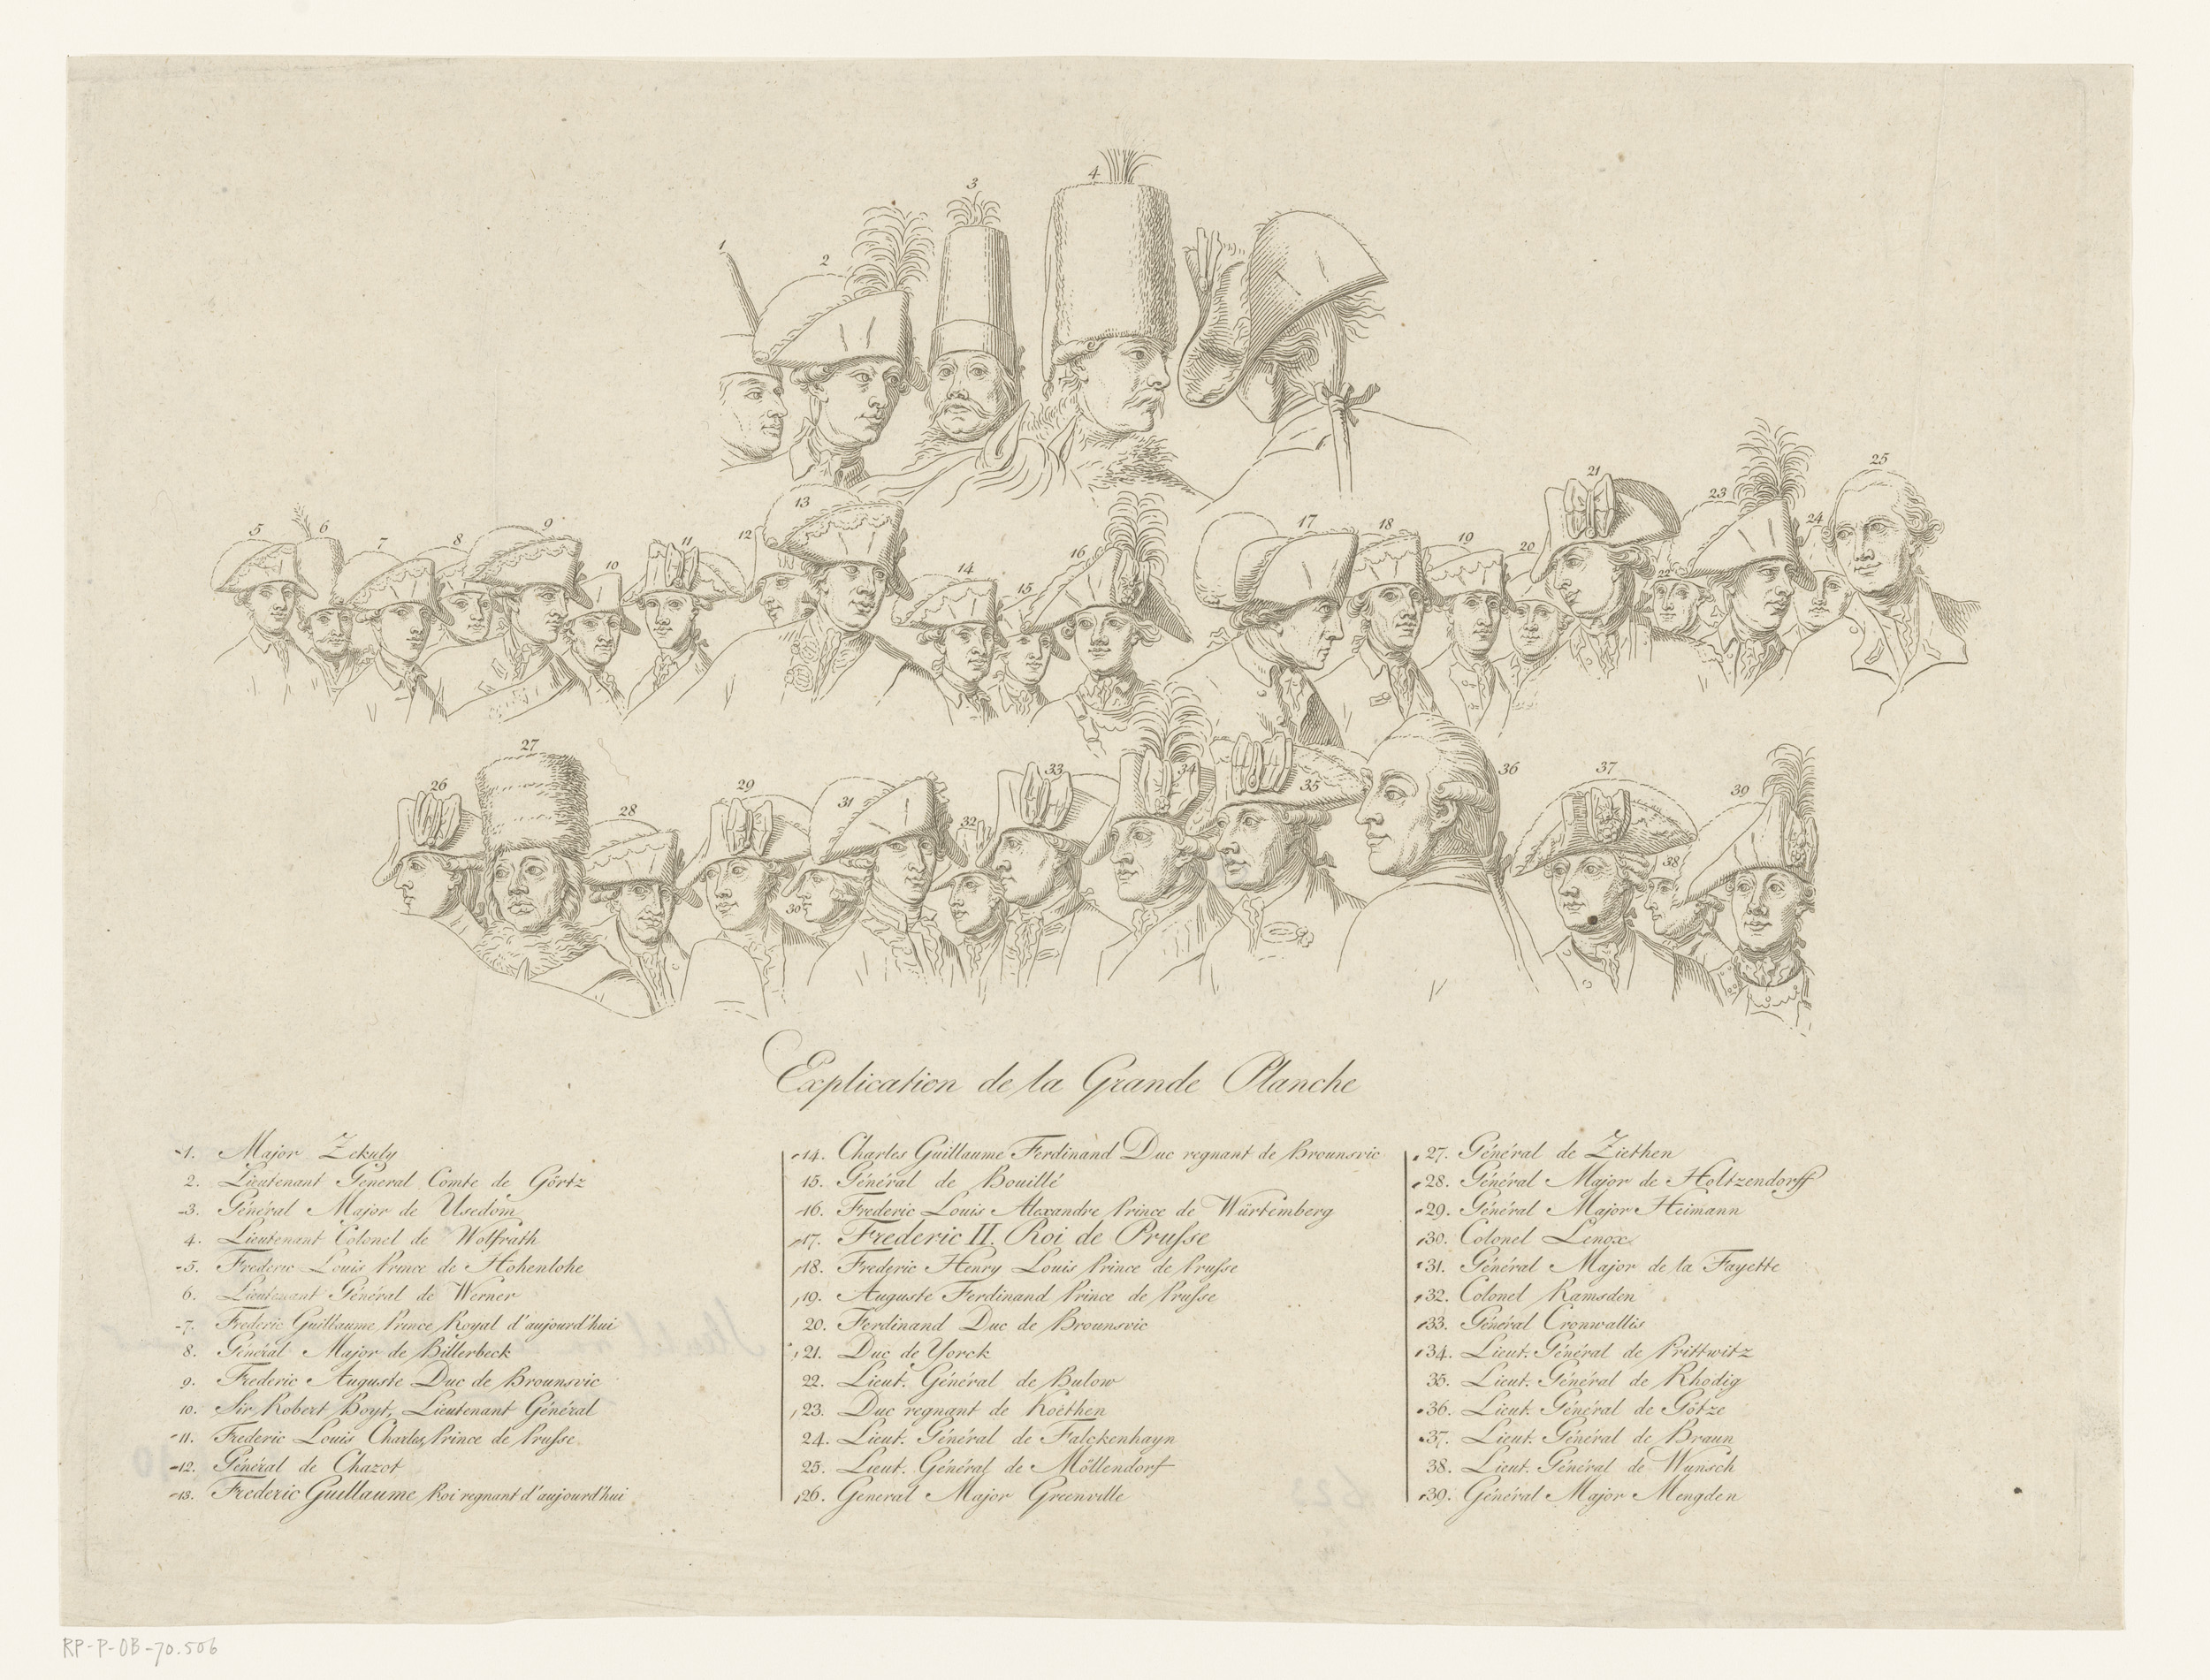 1
2
3
4
5
6
7
8
9
10
11
12
13
14
15
16
17
18
19
20
21
22
23
24
25
26
27
28
29
30
31
32
33
34
35
36
37
38
39
Explication de la Grande Planche
1. Major Zekuly
2. Lieutenant Géneral Comte de Görtz
3. Général Major de Usedom
4. Lieutenant Colonel de Wolfrath
5. Frederic Louis Prince de Hohenlohe
6. Lieutenant Général de Werner
7. Frederic Guillaume Prince Royal d'aujourd'hui
8. Général Major de Billerbeck
9. Frederic Auguste Duc de Brounsvic
10. Sir Robert Boyt, Lieutenant Général
11. Frederic Louis Charles Prince de Prusse
12. Général de Chazot
13. Frederic Guillaume Roi regnant d'aujourd'hui
14. Charles Guillaume Ferdinand Duc regnant de Brounsvic
15. Général de Bouillé
16. Frederic Louis Alexandre Prince de Würtemberg
17. Frederic II. Roi de Prusse
18. Frederic Henry Louis Prince de Prusse
19. Auguste Ferdinand Prince de Prusse
20. Ferdinand Duc de Brounsvic
21. Duc de Yorck
22. Lieut. Général de Bulow
23. Duc regnant de Koethen
24. Lieut. Général de Falckenhayn
25. Lieut. Général de Möllendorf
26. General Major Greenville
27. Général de Ziethen
28. Général Major de Holtzendorff
29. Général Major Heimann
30. Colonel Lenox
31. Général Major de la Fayette
32. Colonel Ramsden
33. Général Cronwallis
34. Lieut. Général de Prittwitz
35. Lieut. Général de Rhodig
36. Lieut. Général de Götze
37. Lieut. Général de Braun
38. Lieut. Général de Wunsch
39. Général Major Mengden
RP-P-OB-70.506